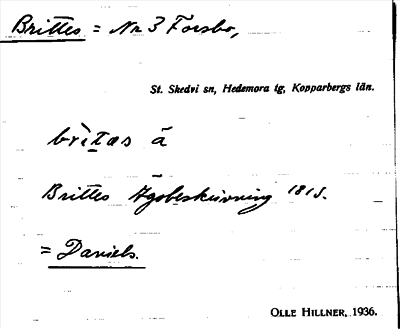 Brittes = Nr 3 Forsbo,
St. Skedvi sn, Hedemora tg, Kopparbergs län.
brìtæs ā
Brittes Ägobeskrivning 1815.
= Daniels.
OLLE HILLNER, 1936.